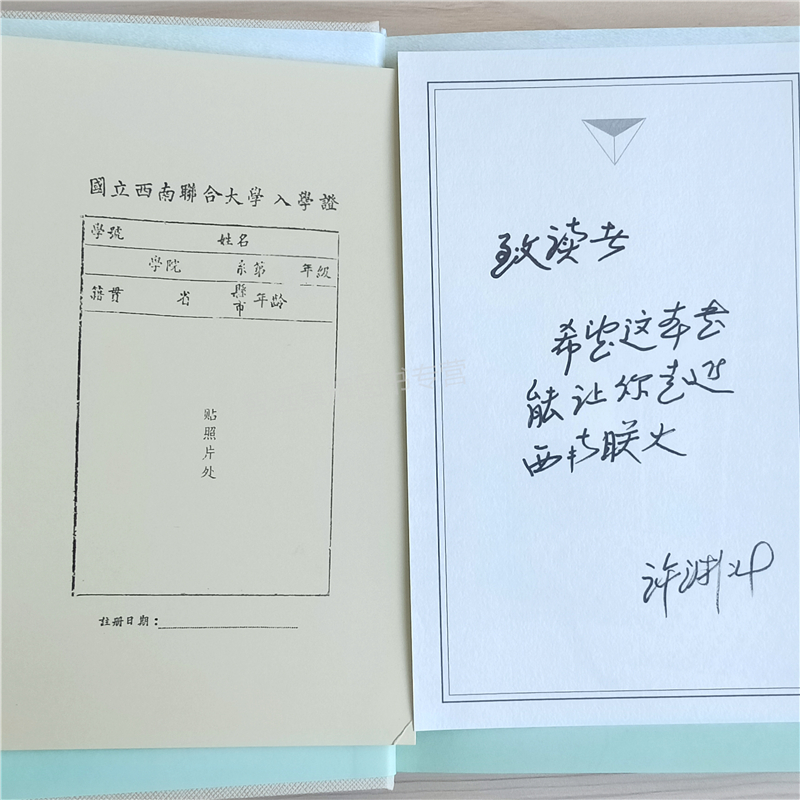 國立西南聯合大學入學證
學號 姓名
學院 系第 年級
籍貫 省 縣市 年齡
貼照片处
註册日期：
致读者
希望这本书
能让你走近
西南联大
许渊冲